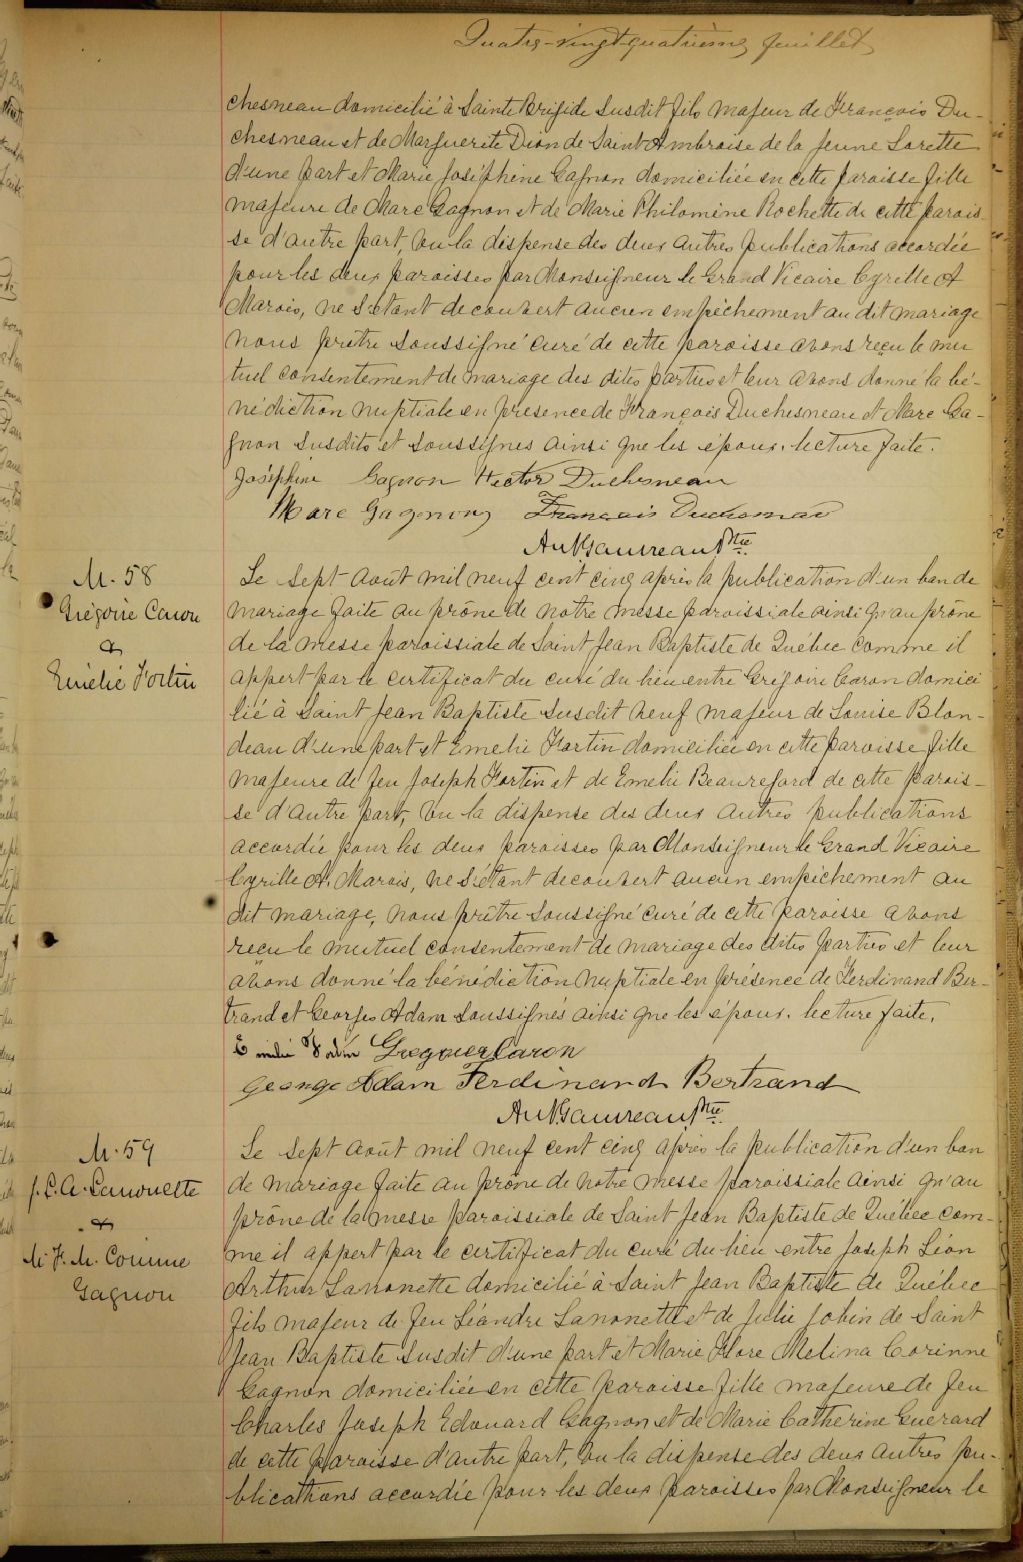 Quatre-vingt-quatrième feuillet
chesneau domicilié à Sainte Brigide susdit fils majeur de François Du-
chesneau et de Marguerite Dion de Saint Ambroise de la Jeune Lorette
d'une part et Marie Joséphine Gagnon domiciliée en cette paroisse fille
majeure de Marc Gagnon et de Marie Philomène Rochette de cette parois-
se d'autre part, vu la dispense des deux autres publications accordée
pour les deux paroisses par Monseigneur le Grand Vicaire Cyrille A
Marois, ne s'étant decouvert aucun empêchement au dit mariage
nous prêtre soussigné curé de cette paroisse avons reçu le mu
tuel consentement de mariage des dites parties et leur avons donné la bé-
nédiction nuptiale en présence de François Duchesneau et Marc Ga-
gnon susdits et soussignés ainsi que les époux. lecture faite.
Joséphine Gagnon Hector Duchesneau
Marc Gagnon François Duchesneau
Ant Gauvreau Ptre
M. 58
Grégoire Caron
&
Emélie Fortin
Le sept août mil neuf cent cinq après la publication d'un ban de
mariage faite au prône de notre messe paroissiale ainsi qu'au prône
de la messe paroissiale de Saint Jean Baptiste de Québec comme il
appert par le certificat du curé du lieu entre Grégoire Caron domici
lié à Saint Jean Baptiste susdit veuf majeur de Louise Blon-
deau d'une part et Emelie Fortin domiciliée en cette paroisse fille
majeure de feu Joseph Fortin et de Emelie Beauregard de cette parois-
se d'autre part, vu la dispense des deux autres publications
accordée pour les deux paroisses par Monseigneur le Grand Vicaire
Cyrille A. Marois, ne s'étant decouvert aucun empêchement au
dit mariage, nous prêtre soussigné curé de cette paroisse avons
reçu le mutuel consentement de mariage des dites parties et leur
avons donné la bénédiction nuptiale en présence de Ferdinand Ber-
trand et Georges Adam soussignés ainsi que les époux. lecture faite.
Emélie Fortin Gregoire Caron
George Adam Ferdinand Bertrand
Ant Gauvreau Ptre
M. 59
J. L. A. Lanouette
&
M. F. M. Corinne
Gagnon
Le sept août mil neuf cent cinq après la publication d'un ban
de mariage faite au prône de notre messe paroissiale ainsi qu'au
prône de la messe paroissiale de Saint Jean Baptiste de Québec com-
me il appert par le certificat du curé du lieu entre Joseph Léon
Arthur Lanouette domicilié à Saint Jean Baptiste de Québec
fils majeur de feu Léandre Lanouette et de Julie Jobin de Saint
Jean Baptiste susdit d'une part et Marie Flore Melina Corinne
Gagnon domiciliée en cette paroisse fille majeure de feu
Charles Joseph Edouard Gagnon et de Marie Catherine Guerard
de cette paroisse d'autre part, vu la dispense des deux autres pu-
blications accordée pour les deux paroisses par Monseigneur le